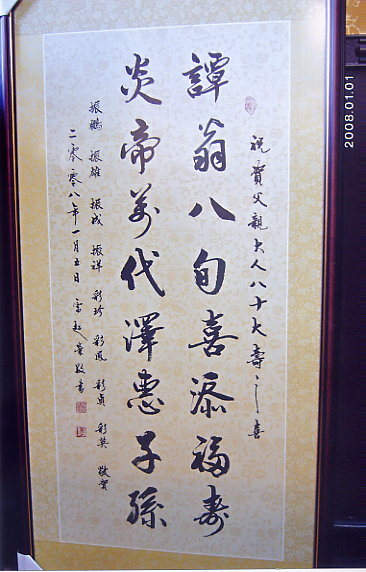 祝賀父親大人八十大壽之喜
譚翁八旬喜添福寿
炎帝萬代澤惠子孫
振鵬 振雄 振成 振祥 彩珍 彩鳳 彩貞 彩英 敬賀
二零零八年一月五日
2008.01.01